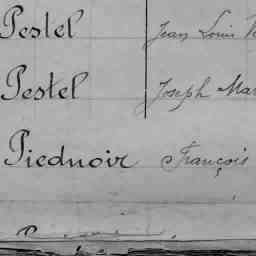 Pestel Jean Louis
Pestel Joseph
Piednoir François